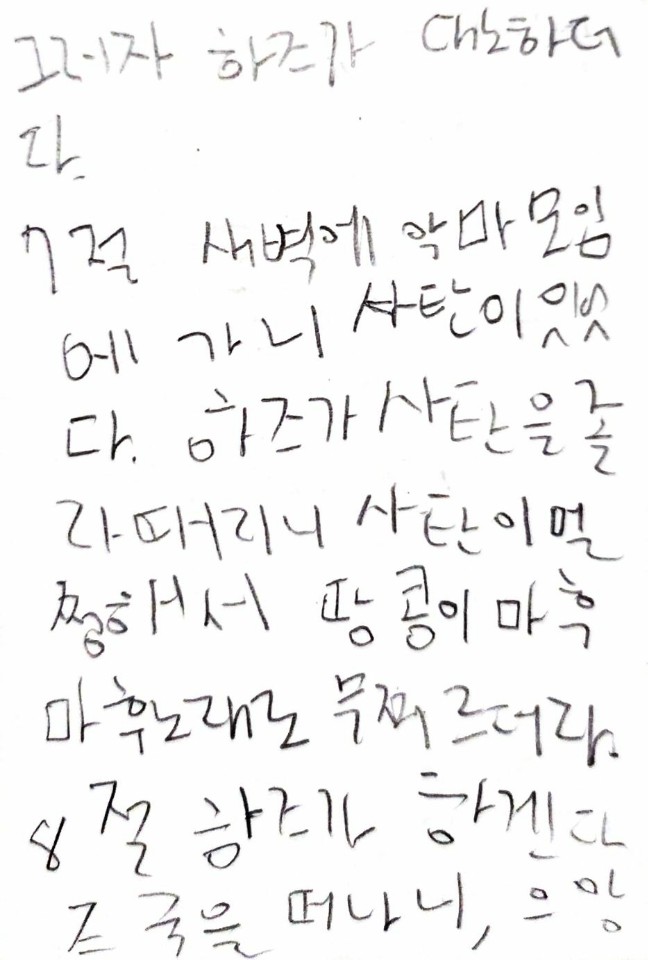 그러자 하즈가 대노하더
라.
7절 새벽에 악마모임
에 가니 사탄이 있었
다. 하즈가 사탄을 졸
라 때리니 사탄이 멀
쩡해서 땅콩이 마후
마후노래로 무찌르더라.
8절 하즈가 항겐다
즈국을 떠나니, 으앙